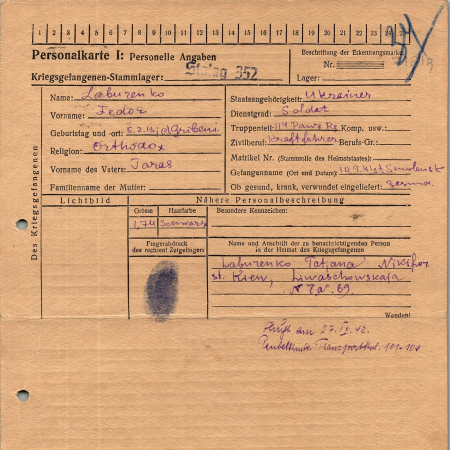 1 2 3 4 5 6 7 8 9 10 11 12 13 14 15 16 17 18 19 20 21 22 23 24 25
Personalkarte I: Personelle Angaben
Kriegsgefangenen-Stammlager: Stalag 352
Beschriftung der Erkennungsmarke
Nr.
Lager:
Des Kriegsgefangenen
Name: Laburenko
Vorname: Fedor
Geburtstag und -ort: 5.2.13
Religion: Orthodox
Vorname des Vaters: Taras
Familienname der Mutter:
Staatsangehörigkeit: Ukrainer
Dienstgrad: Soldat
Truppenteil: 114 Panz Rg Komp. usw.:
Zivilberuf: Kraftfahrer Berufs-Gr.:
Matrikel Nr. (Stammrolle des Heimatstaates):
Gefangennahme (Ort und Datum): 10.9.41 st Smolensk
Ob gesund, krank, verwundet eingeliefert:
Lichtbild
Nähere Personalbeschreibung
Grösse Haarfarbe
1,74 Schwarz
Besondere Kennzeichen:
Fingerabdruck
des rechten! Zeigefingers
Name und Anschrift der zu benachrichtigenden Person
in der Heimat des Kriegsgefangenen
Laburenko Tatjana Nikifor
st. Kiew, Liwaschowskaja
N 7 69.
Wenden!
am 27. 42.
Transport 101-104